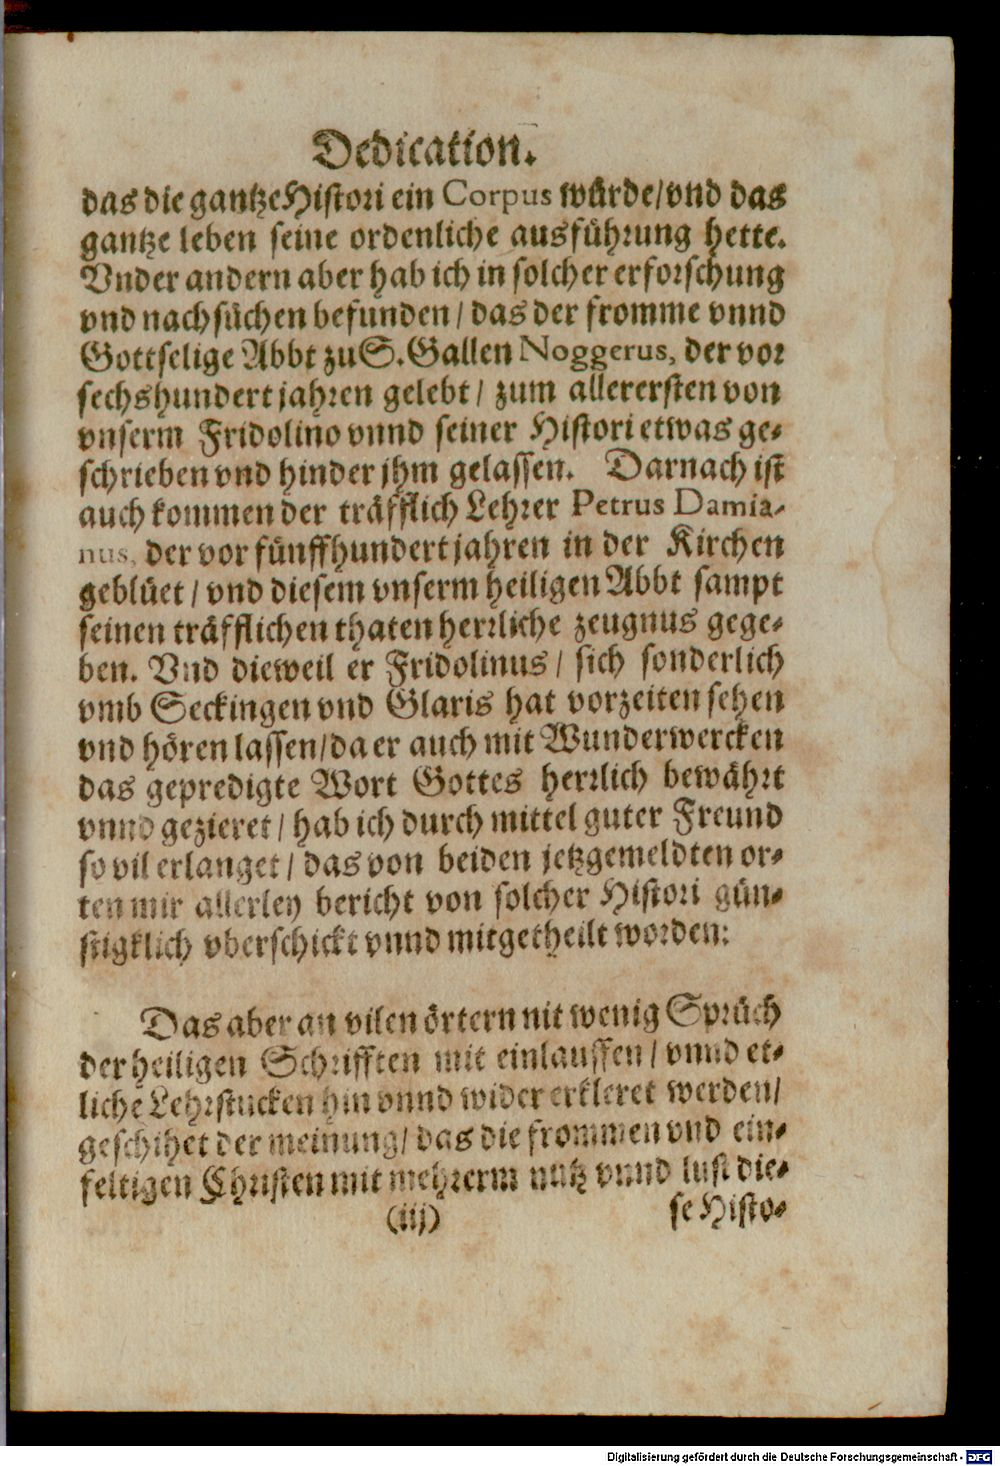 Dedication.
das die gantze Histori ein Corpus würde/ vnd das
gantze leben seine ordenliche ausführung hette.
Vnder andern aber hab ich in solcher erforschung
vnd nachsüchen befunden/ das der fromme vnnd
Gottselige Abbt zu S. Gallen Noggerus, der vor
sechshundert jahren gelebt/ zum allerersten von
vnserm Fridolino vnnd seiner Histori etwas ge-
schrieben vnd hinder jhm gelassen. Darnach ist
auch kommen der träfflich Lehrer Petrus Damia-
nus, der vor fünffhundert jahren in der Kirchen
geblüet/ vnd diesem vnserm heiligen Abbt sampt
seinen träfflichen thaten herrliche zeugnus gege-
ben. Vnd dieweil er Fridolinus/ sich sonderlich
vmb Seckingen vnd Glaris hat vorzeiten sehen
vnd hören lassen/ da er auch mit Wunderwercken
das gepredigte Wort Gottes herrlich bewährt
vnnd gezieret/ hab ich durch mittel guter Freund
so vil erlanget/ das von beiden jetzgemeldten or-
ten mir allerley bericht von solcher Histori gün-
stigklich vberschickt vnnd mitgetheilt worden:
Das aber an vilen örtern nit wenig Sprüch
der heiligen Schrifften mit einlauffen/ vnnd et-
liche Lehrstucken hin vnnd wider erkleret werden/
geschihet der meinung/ das die frommen vnd ein-
feltigen Christen mit mehrerm nutz vnnd lust die-
(iij) se Histo-
Digitalisierung gefördert durch die Deutsche Forschungsgemeinschaft - DFG